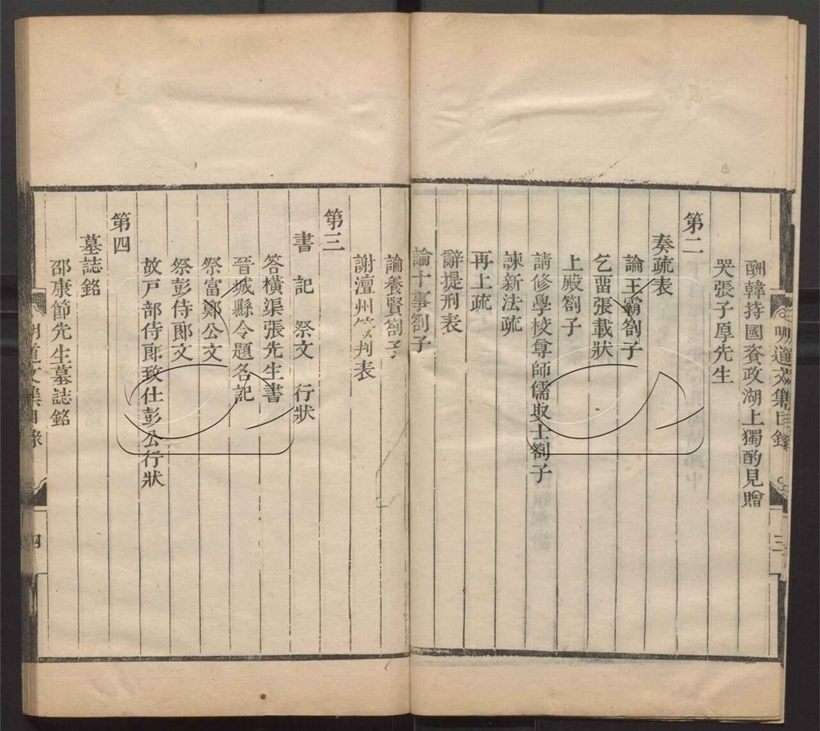 明道文集目錄
三
酬韓持國資政湖上獨酌見贈
哭張子厚先生
第二
奏疏表
論王霸劄子
乞畱張載狀
上殿劄子
請修學校尊師儒取士劄子
諫新法疏
再上疏
辭提刑表
論十事劄子
論養賢劄子
謝澶州簽判表
第三
書 記 祭文 行狀
答橫渠張先生書
晉城縣令題名記
祭富鄭公文
祭彭侍郎文
故戸部侍郎致仕彭公行狀
第四
墓誌銘
邵康節先生墓誌銘
明道文集目錄
四